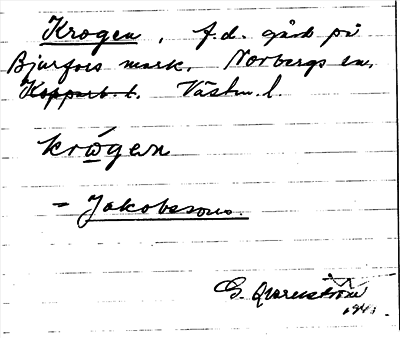 Krogen, f.d. gård på
Bjurfors mark. Norbergs sn.
Kopparb. l. Västm. l.
krógen
= Jakobssons.
G. Qvarnström